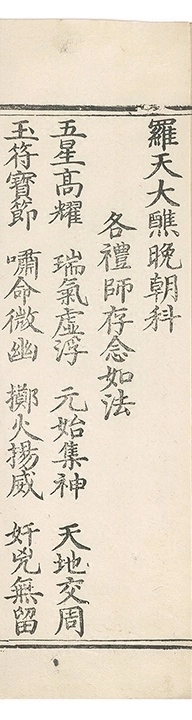 羅天大醮晚朝科
各禮師存念如法
五星高耀 瑞氣虛浮 元始集神 天地交周
玉符寶節 嘯命徵幽 擲火揚威 奸兇無留